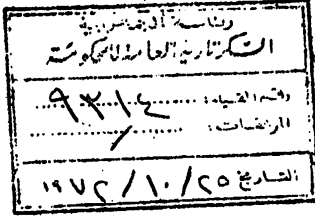 رئاسة الجمهورية
السكرتارية العامة للحكومة
رقم القيد: ٩٣١٤
المرفقات: /
التاريخ ١٩٧٢/١٠/٢٥